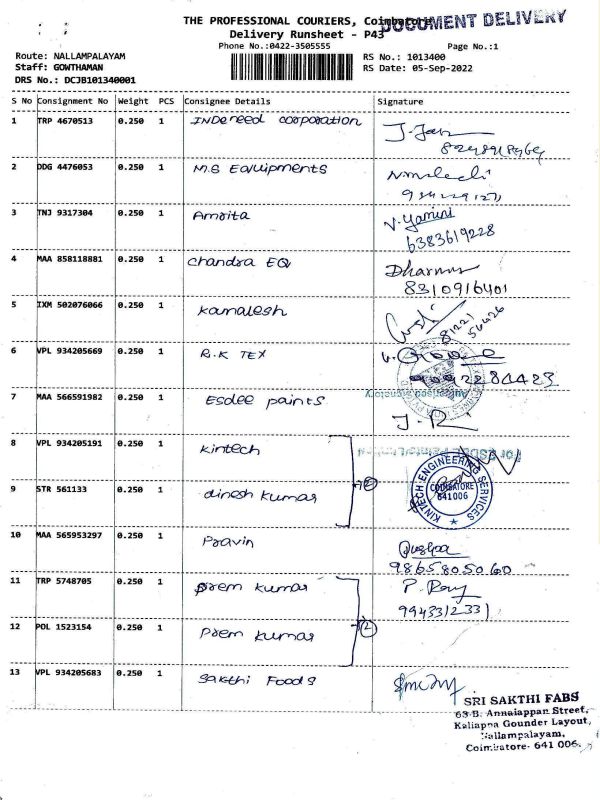 THE PROFESSIONAL COURIERS, Coimbatore
DOCUMENT DELIVERY
Delivery Runsheet - P43
Phone No.:0422-3505555
Page No.:1
Route: NALLAMPALAYAM
RS No.: 1013400
Staff: GOWTHAMAN
RS Date: 05-Sep-2022
DRS No.: DCJB101340001
S No Consignment No Weight PCS Consignee Details Signature
1 TRP 4670513 0.250 1 INDeneed corporation
2 DDG 4476053 0.250 1 M.S Equipments
3 TNJ 9317304 0.250 1 Amrita V. Yamini
6383619228
4 MAA 858118881 0.250 1 chandra EQ
8310916401
5 IXM 502076066 0.250 1 kamalesh
6 VPL 934205669 0.250 1 R.K TEX
7 MAA 566591982 0.250 1 Esdee paints
8 VPL 934205191 0.250 1 kintech
9 STR 561133 0.250 1 dinesh kumar
2
KINTECH ENGINEERING SERVICES
COIMBATORE
641 006
10 MAA 565953297 0.250 1 Pravin
9865805060
11 TRP 5748705 0.250 1 prem kumar
9943312331
12 POL 1523154 0.250 1 Prem kumar
2
13 VPL 934205683 0.250 1 Sakthi Foods
SRI SAKTHI FABS
63-B. Annaiappan Street,
Kaliappa Gounder Layout,
Nallampalayam,
Coimbatore- 641 006.